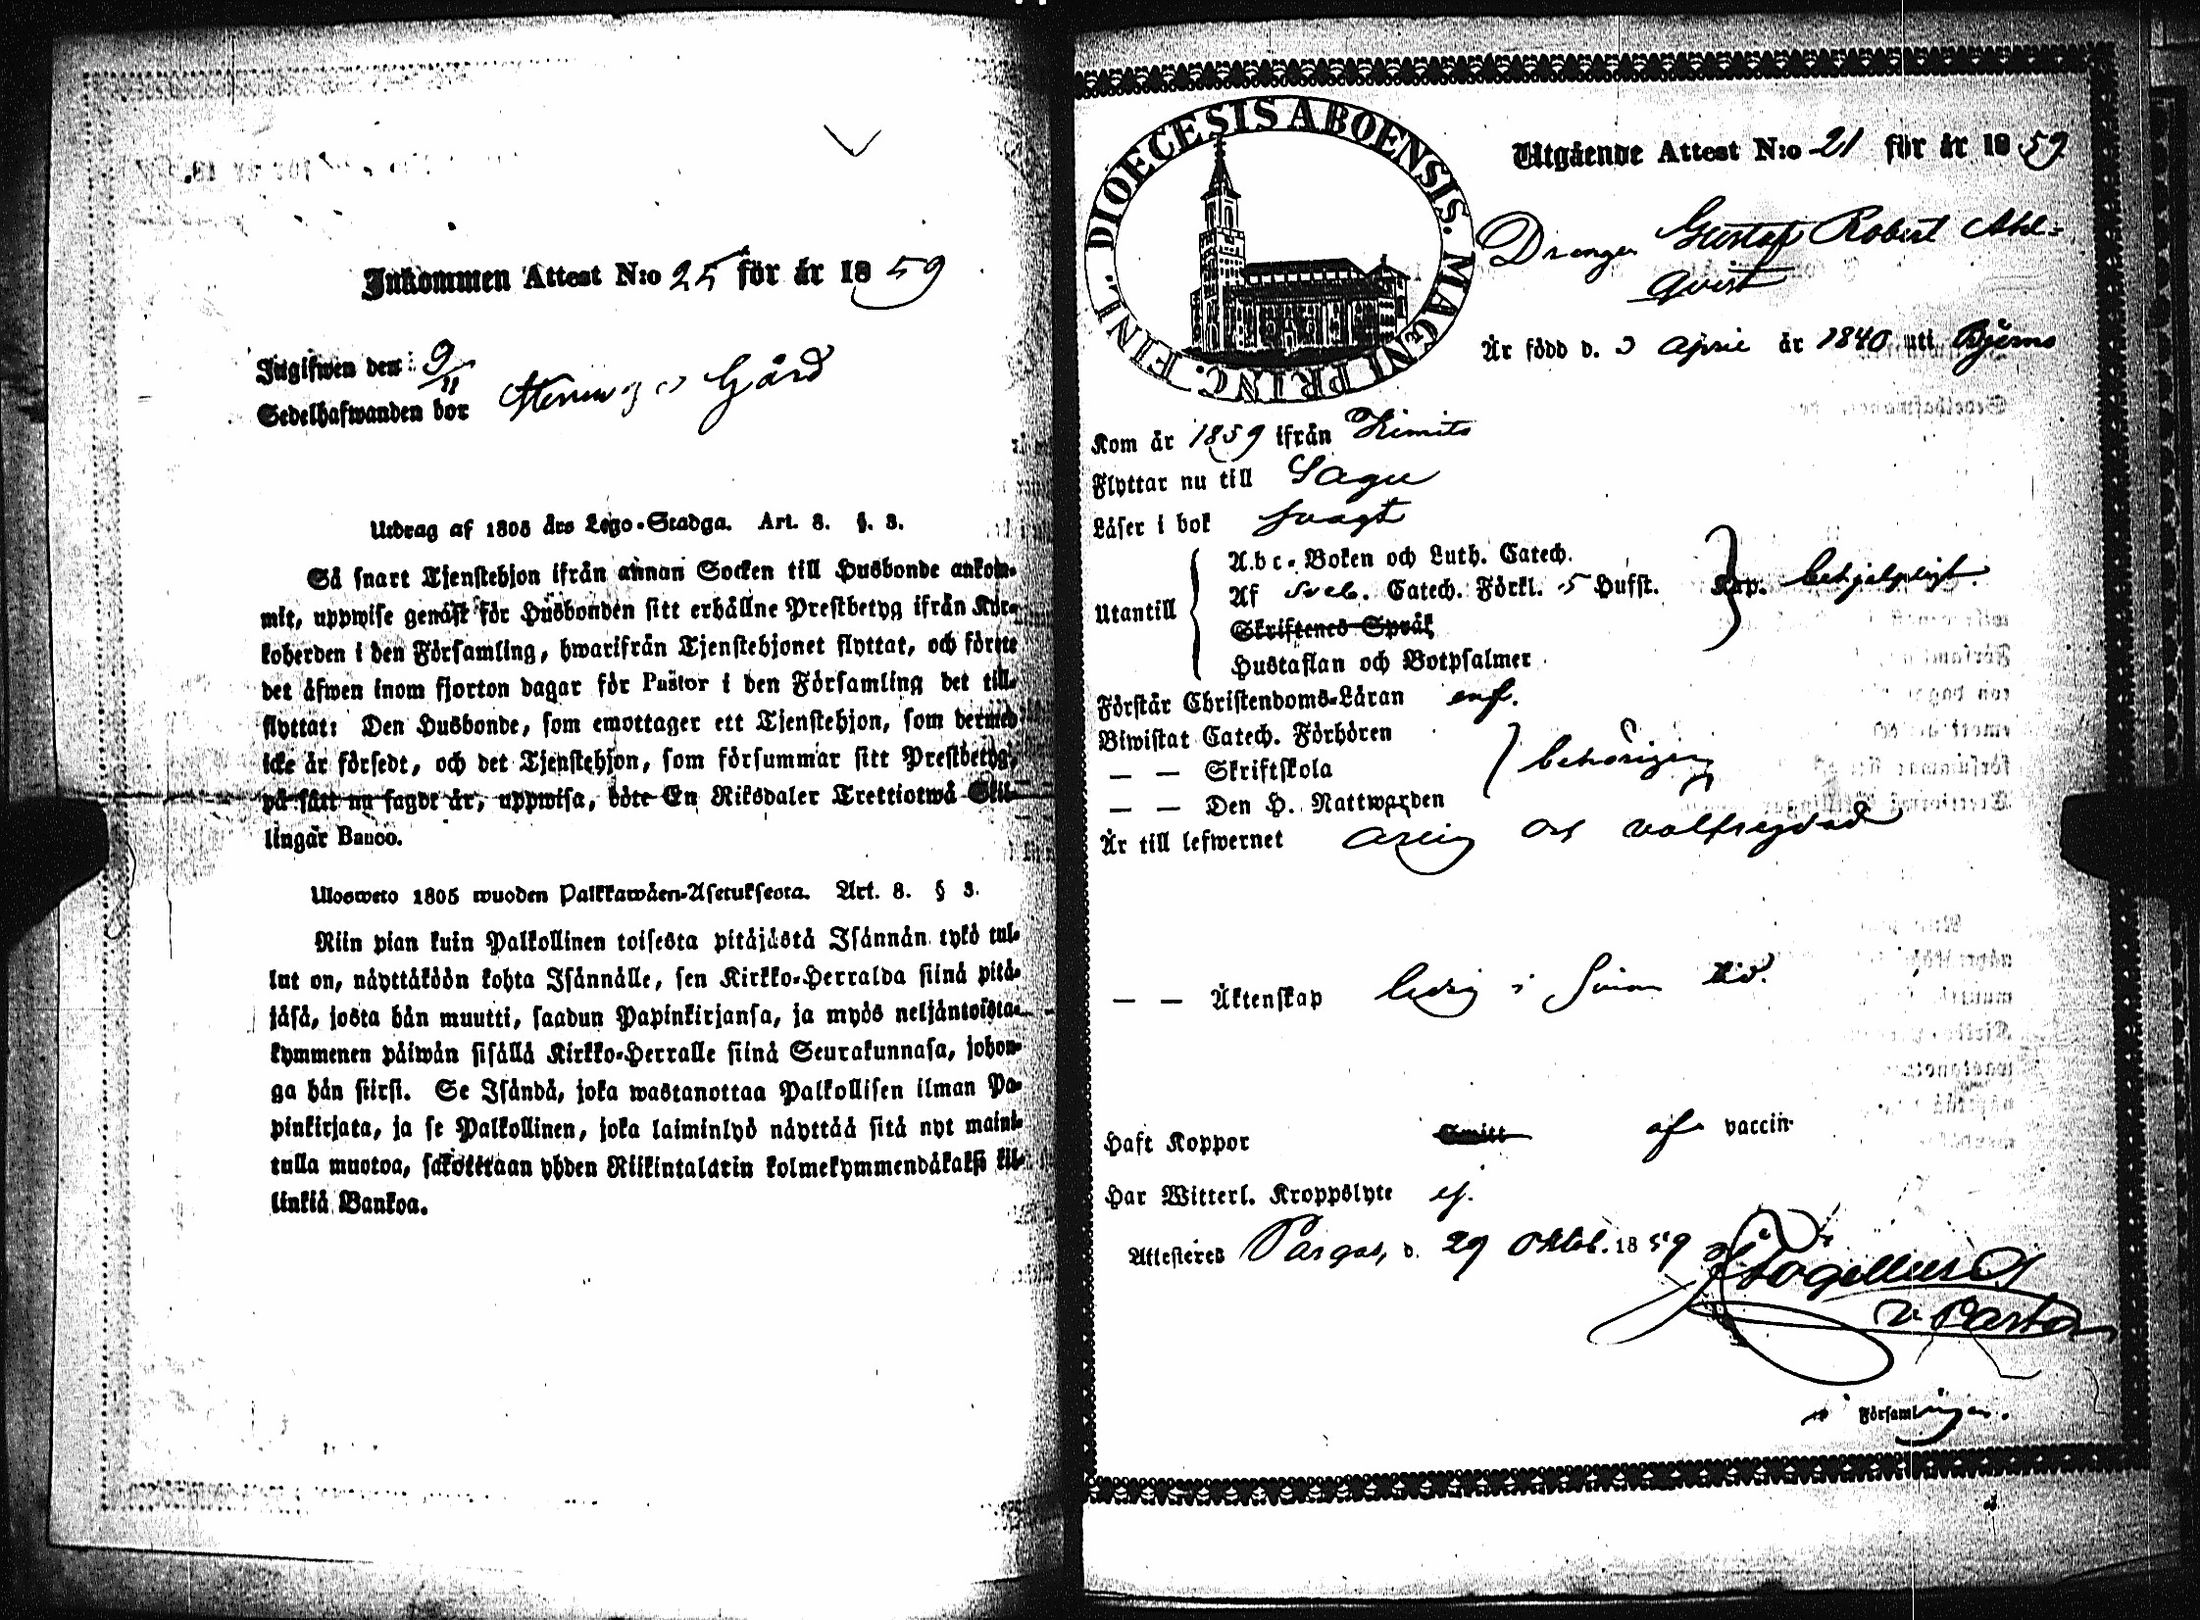 Inkommen Attest N:o 25 för år 1859
Ingifwen den 9/11
Sedelhafwanden bor Gård
Utdrag af 1805 års Lego-Stadga. Art. 8. §. 3.
Så snart Tjenstehjon ifrån annan Socken till Husbonde ankom-
mit, uppwise genäst för Husbonden sitt erhållne Prestbetyg ifrån Kyr-
koherden i den Församling, hwarifrån Tjenstehjonet flyttat, och förete
det äfwen inom fjorton dagar för Pastor i den Församling det till-
flyttat: Den Husbonde, som emottager ett Tjenstehjon, som dermed
icke är försedt, och det Tjenstehjon, som försummar sitt Prestbetyg,
på sätt nu sagdt är, uppwisa, böte En Riksdaler Trettiotwå Skil-
lingar Banco.
Ulosweto 1805 wuoden Palkkawäen-Asetuksesta. Art. 8. § 3.
Niin pian kuin Palkollinen toisesta pitäjästä Isännän tykö tul-
lut on, näyttäköön kohta Isännälle, sen Kirkko-Herralda siinä pitä-
jäsä, josta hän muutti, saadun Papinkirjansa, ja myös neljäntoista-
kymmenen päiwän sisällä Kirkko-Herralle siinä Seurakunnasa, johon-
ga hän siirsi. Se Isändä, joka wastanottaa Palkollisen ilman Pa-
pinkirjata, ja se Palkollinen, joka laiminlyö näyttää sitä nyt maini-
tulla muotoa, sakotetaan yhden Riikintalarin kolmekymmendäkaksi kil-
linkiä Bankoa.
DIOECESIS ABOENSIS. MAGNI PRINC. FINL.
Utgående Attest N:o 21 för år 1859
Drengen Gustaf Robert Ahl-
qvist
Är född d. 3 April år 1840 uti Bjerno
Kom år 1859 ifrån Kimito
Flyttar nu till Sagu
Läser i bok svagt
Utantill
A.b.c.-Boken och Luth. Catech.
Af Sveb. Catech. Förkl. 5 Hufst. Kap. behjelpligt.
Skriftenes Språk
Hustaflan och Botpsalmer
Förstår Christendoms-Läran enf.
Biwistat Catech. Förhören
— — Skriftskola behörigen
— — Den H. Nattwarden
Är till lefwernet ärlig och välfrejdad
— — Äktenskap ledig i Finland.
Haft Koppor Smitt af vaccin
Har Witterl. Kroppslyte ej.
Attesteres Pargas, d. 29 Oktob. 1859
v Pastor
i Församlingen.